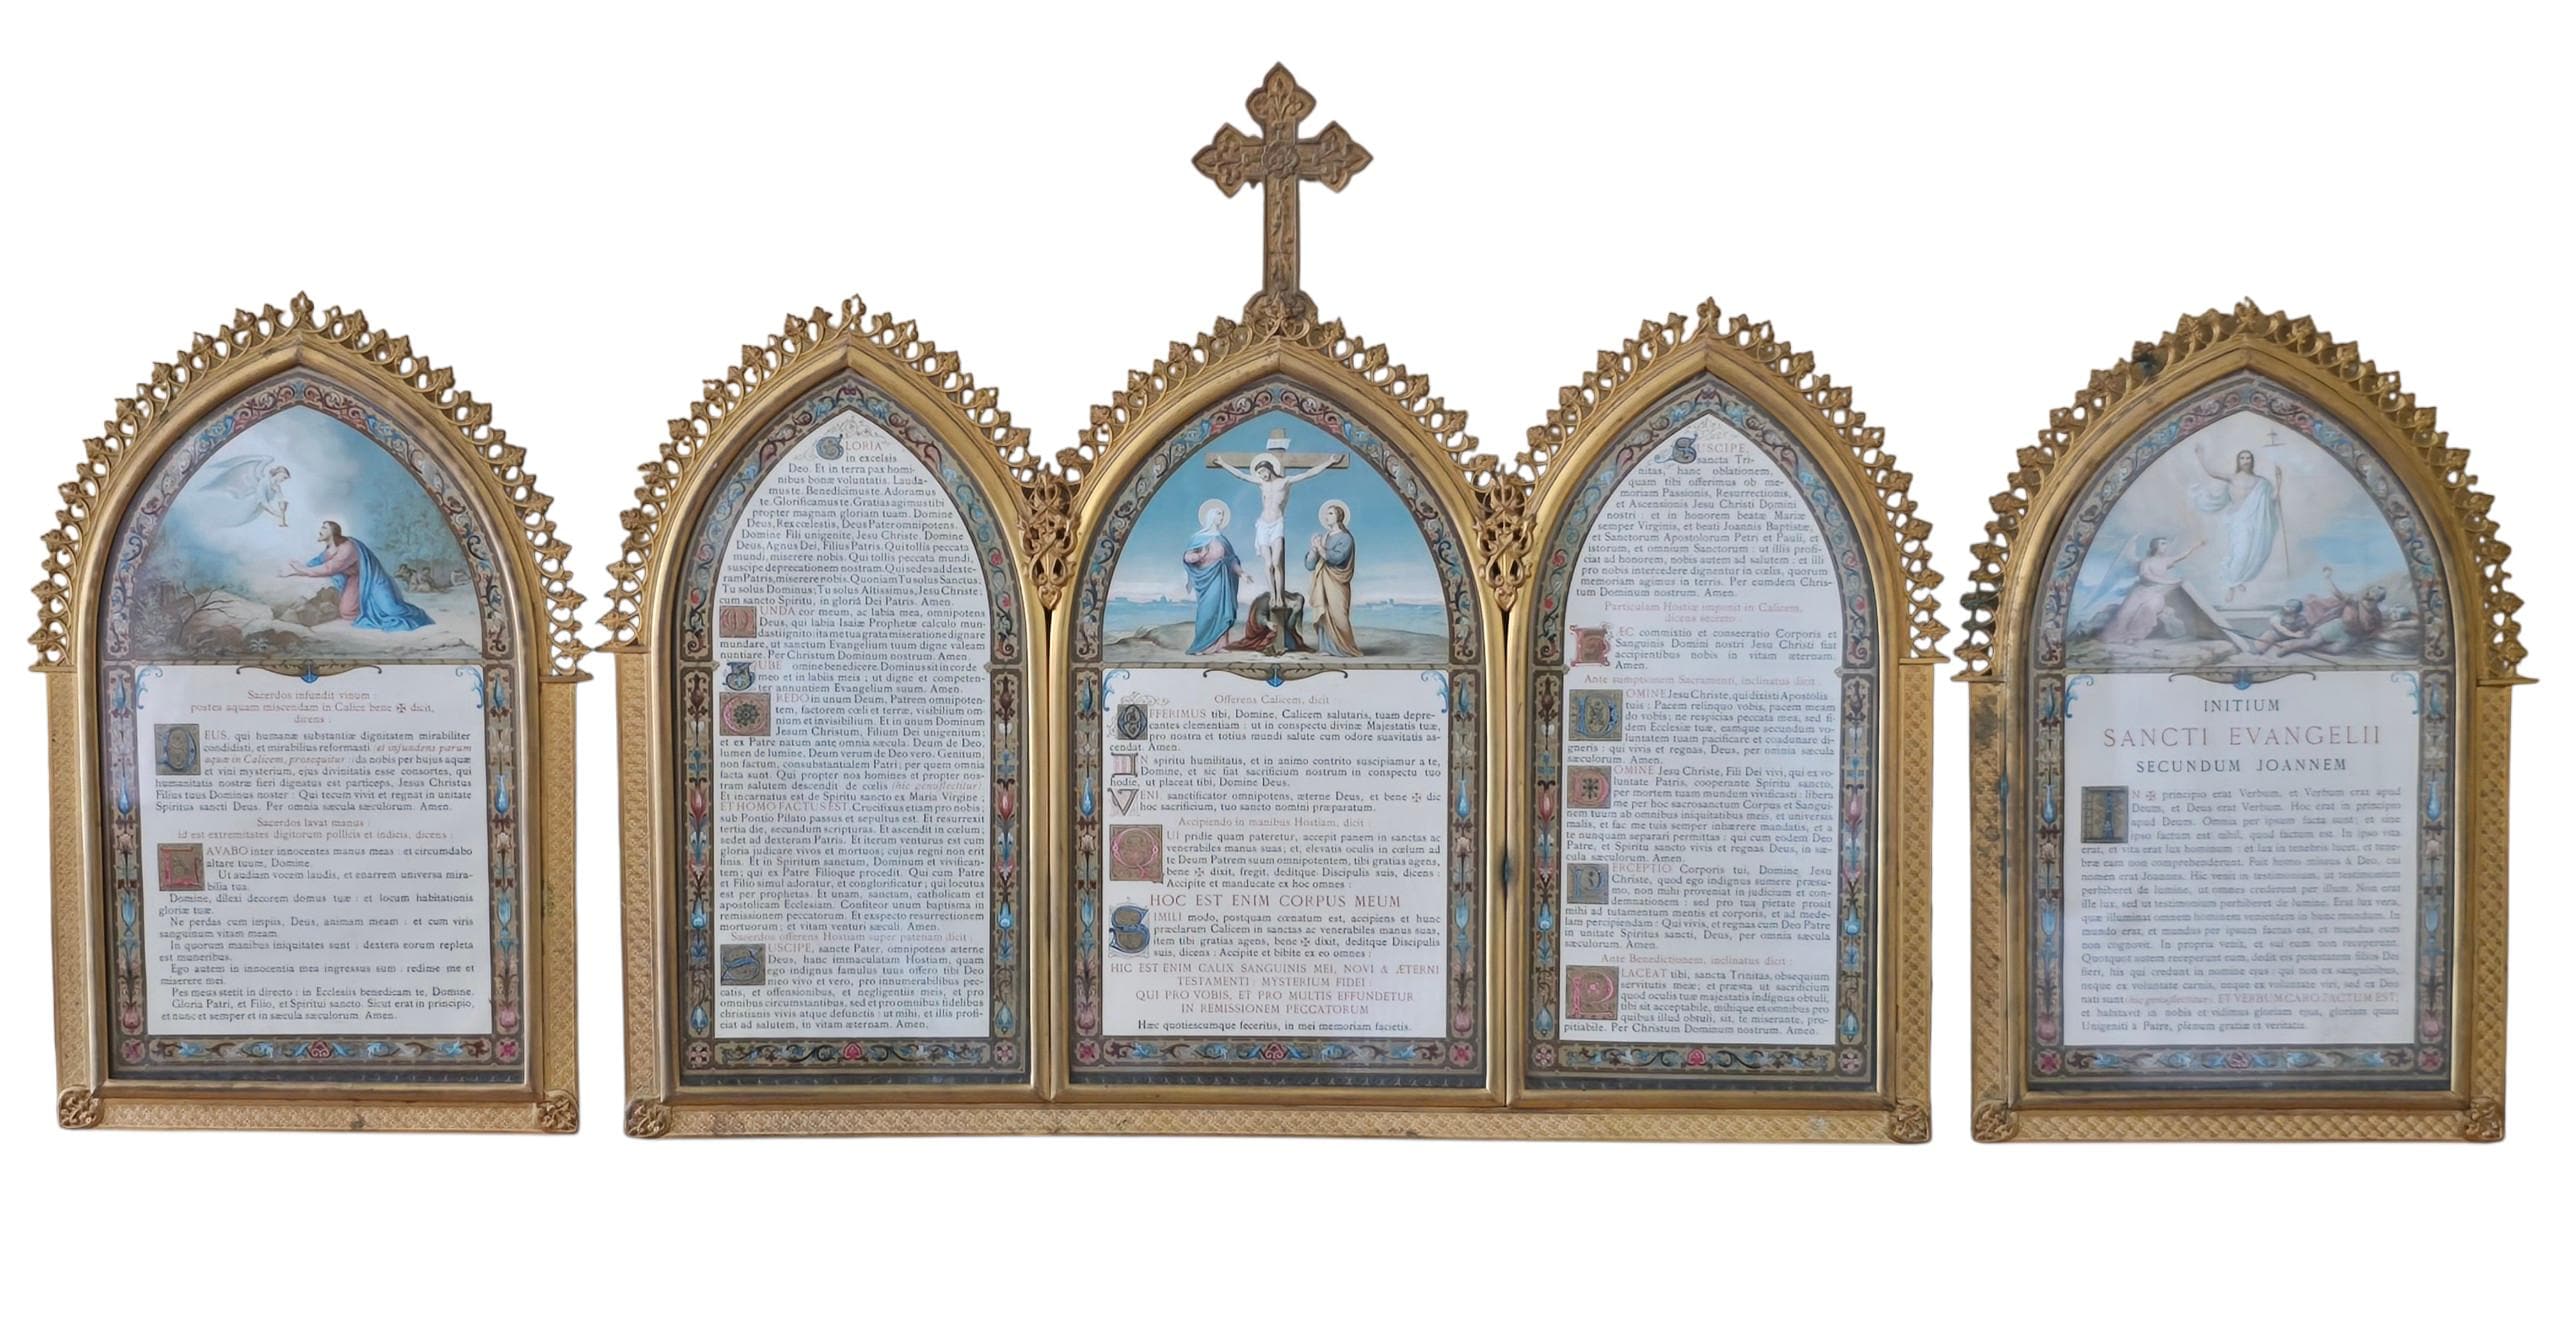 Sacerdos infundit vinum :
postea aquam miscendam in Calice bene ✠ dicit,
dicens :
DEUS, qui humanæ substantiæ dignitatem mirabiliter
condidisti, et mirabilius reformasti (et infundens parum
aquæ in Calicem, prosequitur : da nobis per hujus aquæ
et vini mysterium, ejus divinitatis esse consortes, qui
humanitatis nostræ fieri dignatus est particeps, Jesus Christus
Filius tuus Dominus noster : Qui tecum vivit et regnat in unitate
Spiritus sancti Deus. Per omnia sæcula sæculorum. Amen.
Sacerdos lavat manus :
id est extremitates digitorum pollicis et indicis, dicens :
LAVABO inter innocentes manus meas : et circumdabo
altare tuum, Domine.
Ut audiam vocem laudis, et enarrem universa mira-
bilia tua.
Domine, dilexi decorem domus tuæ : et locum habitationis
gloriæ tuæ.
Ne perdas cum impiis, Deus, animam meam : et cum viris
sanguinum vitam meam.
In quorum manibus iniquitates sunt : dextera eorum repleta
est muneribus.
Ego autem in innocentia mea ingressus sum : redime me et
miserere mei.
Pes meus stetit in directo : in Ecclesiis benedicam te, Domine.
Gloria Patri, et Filio, et Spiritui sancto. Sicut erat in principio,
et nunc et semper et in sæcula sæculorum. Amen.
GLORIA
in excelsis
Deo. Et in terra pax homi-
nibus bonæ voluntatis. Lauda-
mus te. Benedicimus te. Adoramus
te. Glorificamus te. Gratias agimus tibi
propter magnam gloriam tuam. Domine
Deus, Rex cœlestis, Deus Pater omnipotens.
Domine Fili unigenite, Jesu Christe. Domine
Deus, Agnus Dei, Filius Patris. Qui tollis peccata
mundi, miserere nobis. Qui tollis peccata mundi,
suscipe deprecationem nostram. Qui sedes ad dexte-
ram Patris, miserere nobis. Quoniam Tu solus Sanctus;
Tu solus Dominus; Tu solus Altissimus, Jesu Christe;
cum sancto Spiritu, in gloriâ Dei Patris. Amen.
MUNDA cor meum, ac labia mea, omnipotens
Deus, qui labia Isaiæ Prophetæ calculo mun-
dasti ignito : ita me tua grata miseratione dignare
mundare, ut sanctum Evangelium tuum digne valeam
nuntiare. Per Christum Dominum nostrum. Amen.
JUBE omine benedicere. Dominus sit in corde
meo et in labiis meis ; ut digne et competen-
ter annuntiem Evangelium suum. Amen.
CREDO in unum Deum, Patrem omnipoten-
tem, factorem cœli et terræ, visibilium om-
nium et invisibilium. Et in unum Dominum
Jesum Christum, Filium Dei unigenitum;
et ex Patre natum ante omnia sæcula. Deum de Deo,
lumen de lumine, Deum verum de Deo vero. Genitum,
non factum, consubstantialem Patri; per quem omnia
facta sunt. Qui propter nos homines et propter nos-
tram salutem descendit de cœlis (hic genuflectitur).
Et incarnatus est de Spiritu sancto ex Maria Virgine ;
ET HOMO FACTUS EST. Crucifixus etiam pro nobis;
sub Pontio Pilato passus et sepultus est. Et resurrexit
tertia die, secundum scripturas. Et ascendit in cœlum;
sedet ad dexteram Patris. Et iterum venturus est cum
gloria judicare vivos et mortuos; cujus regni non erit
finis. Et in Spiritum sanctum, Dominum et vivifican-
tem; qui ex Patre Filioque procedit. Qui cum Patre
et Filio simul adoratur, et conglorificatur; qui locutus
est per prophetas. Et unam, sanctam, catholicam et
apostolicam Ecclesiam. Confiteor unum baptisma in
remissionem peccatorum. Et exspecto resurrectionem
mortuorum; et vitam venturi sæculi. Amen.
Sacerdos offerens Hostiam super patenam dicit :
SUSCIPE, sancte Pater, omnipotens æterne
Deus, hanc immaculatam Hostiam, quam
ego indignus famulus tuus offero tibi Deo
meo vivo et vero, pro innumerabilibus pec-
catis, et offensionibus, et negligentiis meis, et pro
omnibus circumstantibus, sed et pro omnibus fidelibus
christianis vivis atque defunctis : ut mihi, et illis profi-
ciat ad salutem, in vitam æternam. Amen.
Offerens Calicem, dicit :
OFFERIMUS tibi, Domine, Calicem salutaris, tuam depre-
cantes clementiam : ut in conspectu divinæ Majestatis tuæ,
pro nostra et totius mundi salute cum odore suavitatis as-
cendat. Amen.
IN spiritu humilitatis, et in animo contrito suscipiamur a te,
Domine, et sic fiat sacrificium nostrum in conspectu tuo
hodie, ut placeat tibi, Domine Deus.
VENI sanctificator omnipotens, æterne Deus, et bene ✠ dic
hoc sacrificium, tuo sancto nomini præparatum.
Accipiendo in manibus Hostiam, dicit :
QUI pridie quam pateretur, accepit panem in sanctas ac
venerabiles manus suas; et, elevatis oculis in cœlum ad
te Deum Patrem suum omnipotentem, tibi gratias agens,
bene ✠ dixit, fregit, deditque Discipulis suis, dicens :
Accipite et manducate ex hoc omnes :
HOC EST ENIM CORPUS MEUM
SIMILI modo, postquam cœnatum est, accipiens et hunc
præclarum Calicem in sanctas ac venerabiles manus suas,
item tibi gratias agens, bene ✠ dixit, deditque Discipulis
suis, dicens : Accipite et bibite ex eo omnes :
HIC EST ENIM CALIX SANGUINIS MEI, NOVI & ÆTERNI
TESTAMENTI : MYSTERIUM FIDEI :
QUI PRO VOBIS, ET PRO MULTIS EFFUNDETUR
IN REMISSIONEM PECCATORUM
Hæc quotiescumque feceritis, in mei memoriam facietis.
SUSCIPE,
sancta Tri-
nitas, hanc oblationem,
quam tibi offerimus ob me-
moriam Passionis, Resurrectionis,
et Ascensionis Jesu Christi Domini
nostri : et in honorem beatæ Mariæ
semper Virginis, et beati Joannis Baptistæ,
et Sanctorum Apostolorum Petri et Pauli, et
istorum, et omnium Sanctorum : ut illis profi-
ciat ad honorem, nobis autem ad salutem : et illi
pro nobis intercedere dignentur in cœlis, quorum
memoriam agimus in terris. Per eumdem Chris-
tum Dominum nostrum. Amen.
Particulam Hostiæ imponit in Calicem,
dicens secreto :
HÆC commistio et consecratio Corporis et
Sanguinis Domini nostri Jesu Christi fiat
accipientibus nobis in vitam æternam.
Amen.
Ante sumptionem Sacramenti, inclinatus dicit :
DOMINE Jesu Christe, qui dixisti Apostolis
tuis : Pacem relinquo vobis, pacem meam
do vobis; ne respicias peccata mea, sed fi-
dem Ecclesiæ tuæ, eamque secundum vo-
luntatem tuam pacificare et coadunare di-
gneris : qui vivis et regnas, Deus, per omnia sæcula
sæculorum. Amen.
DOMINE Jesu Christe, Fili Dei vivi, qui ex vo-
luntate Patris, cooperante Spiritu sancto,
per mortem tuam mundum vivificasti : libera
me per hoc sacrosanctum Corpus et Sangui-
nem tuum ab omnibus iniquitatibus meis, et universis
malis, et fac me tuis semper inhærere mandatis, et a
te nunquam separari permittas : qui cum eodem Deo
Patre, et Spiritu sancto vivis et regnas Deus, in sæ-
cula sæculorum. Amen.
PERCEPTIO Corporis tui, Domine, Jesu
Christe, quod ego indignus sumere præsu-
mo, non mihi proveniat in judicium et con-
demnationem : sed pro tua pietate prosit
mihi ad tutamentum mentis et corporis, et ad mede-
lam percipiendam : Qui vivis, et regnas cum Deo Patre
in unitate Spiritus sancti, Deus, per omnia sæcula
sæculorum. Amen.
Ante Benedictionem, inclinatus dicit :
PLACEAT tibi, sancta Trinitas, obsequium
servitutis meæ; et præsta ut sacrificium
quod oculis tuæ majestatis indignus obtuli,
tibi sit acceptabile, mihique et omnibus pro
quibus illud obtuli, sit, te miserante, pro-
pitiabile. Per Christum Dominum nostrum. Amen.
INITIUM
SANCTI EVANGELII
SECUNDUM JOANNEM
IN ✠ principio erat Verbum, et Verbum erat apud
Deum, et Deus erat Verbum. Hoc erat in principio
apud Deum. Omnia per ipsum facta sunt; et sine
ipso factum est nihil, quod factum est. In ipso vita
erat, et vita erat lux hominum : et lux in tenebris lucet, et tene-
bræ eam non comprehenderunt. Fuit homo missus à Deo, cui
nomen erat Joannes. Hic venit in testimonium, ut testimonium
perhiberet de lumine, ut omnes crederent per illum. Non erat
ille lux, sed ut testimonium perhiberet de lumine. Erat lux vera,
quæ illuminat omnem hominem venientem in hunc mundum. In
mundo erat, et mundus per ipsum factus est, et mundus eum
non cognovit. In propria venit, et sui eum non receperunt.
Quotquot autem receperunt eum, dedit eis potestatem filios Dei
fieri, his qui credunt in nomine ejus : qui non ex sanguinibus,
neque ex voluntate carnis, neque ex voluntate viri, sed ex Deo
nati sunt (hic genuflectitur). ET VERBUM CARO FACTUM EST;
et habitavit in nobis et vidimus gloriam ejus, gloriam quasi
Unigeniti à Patre, plenum gratiæ et veritatis.